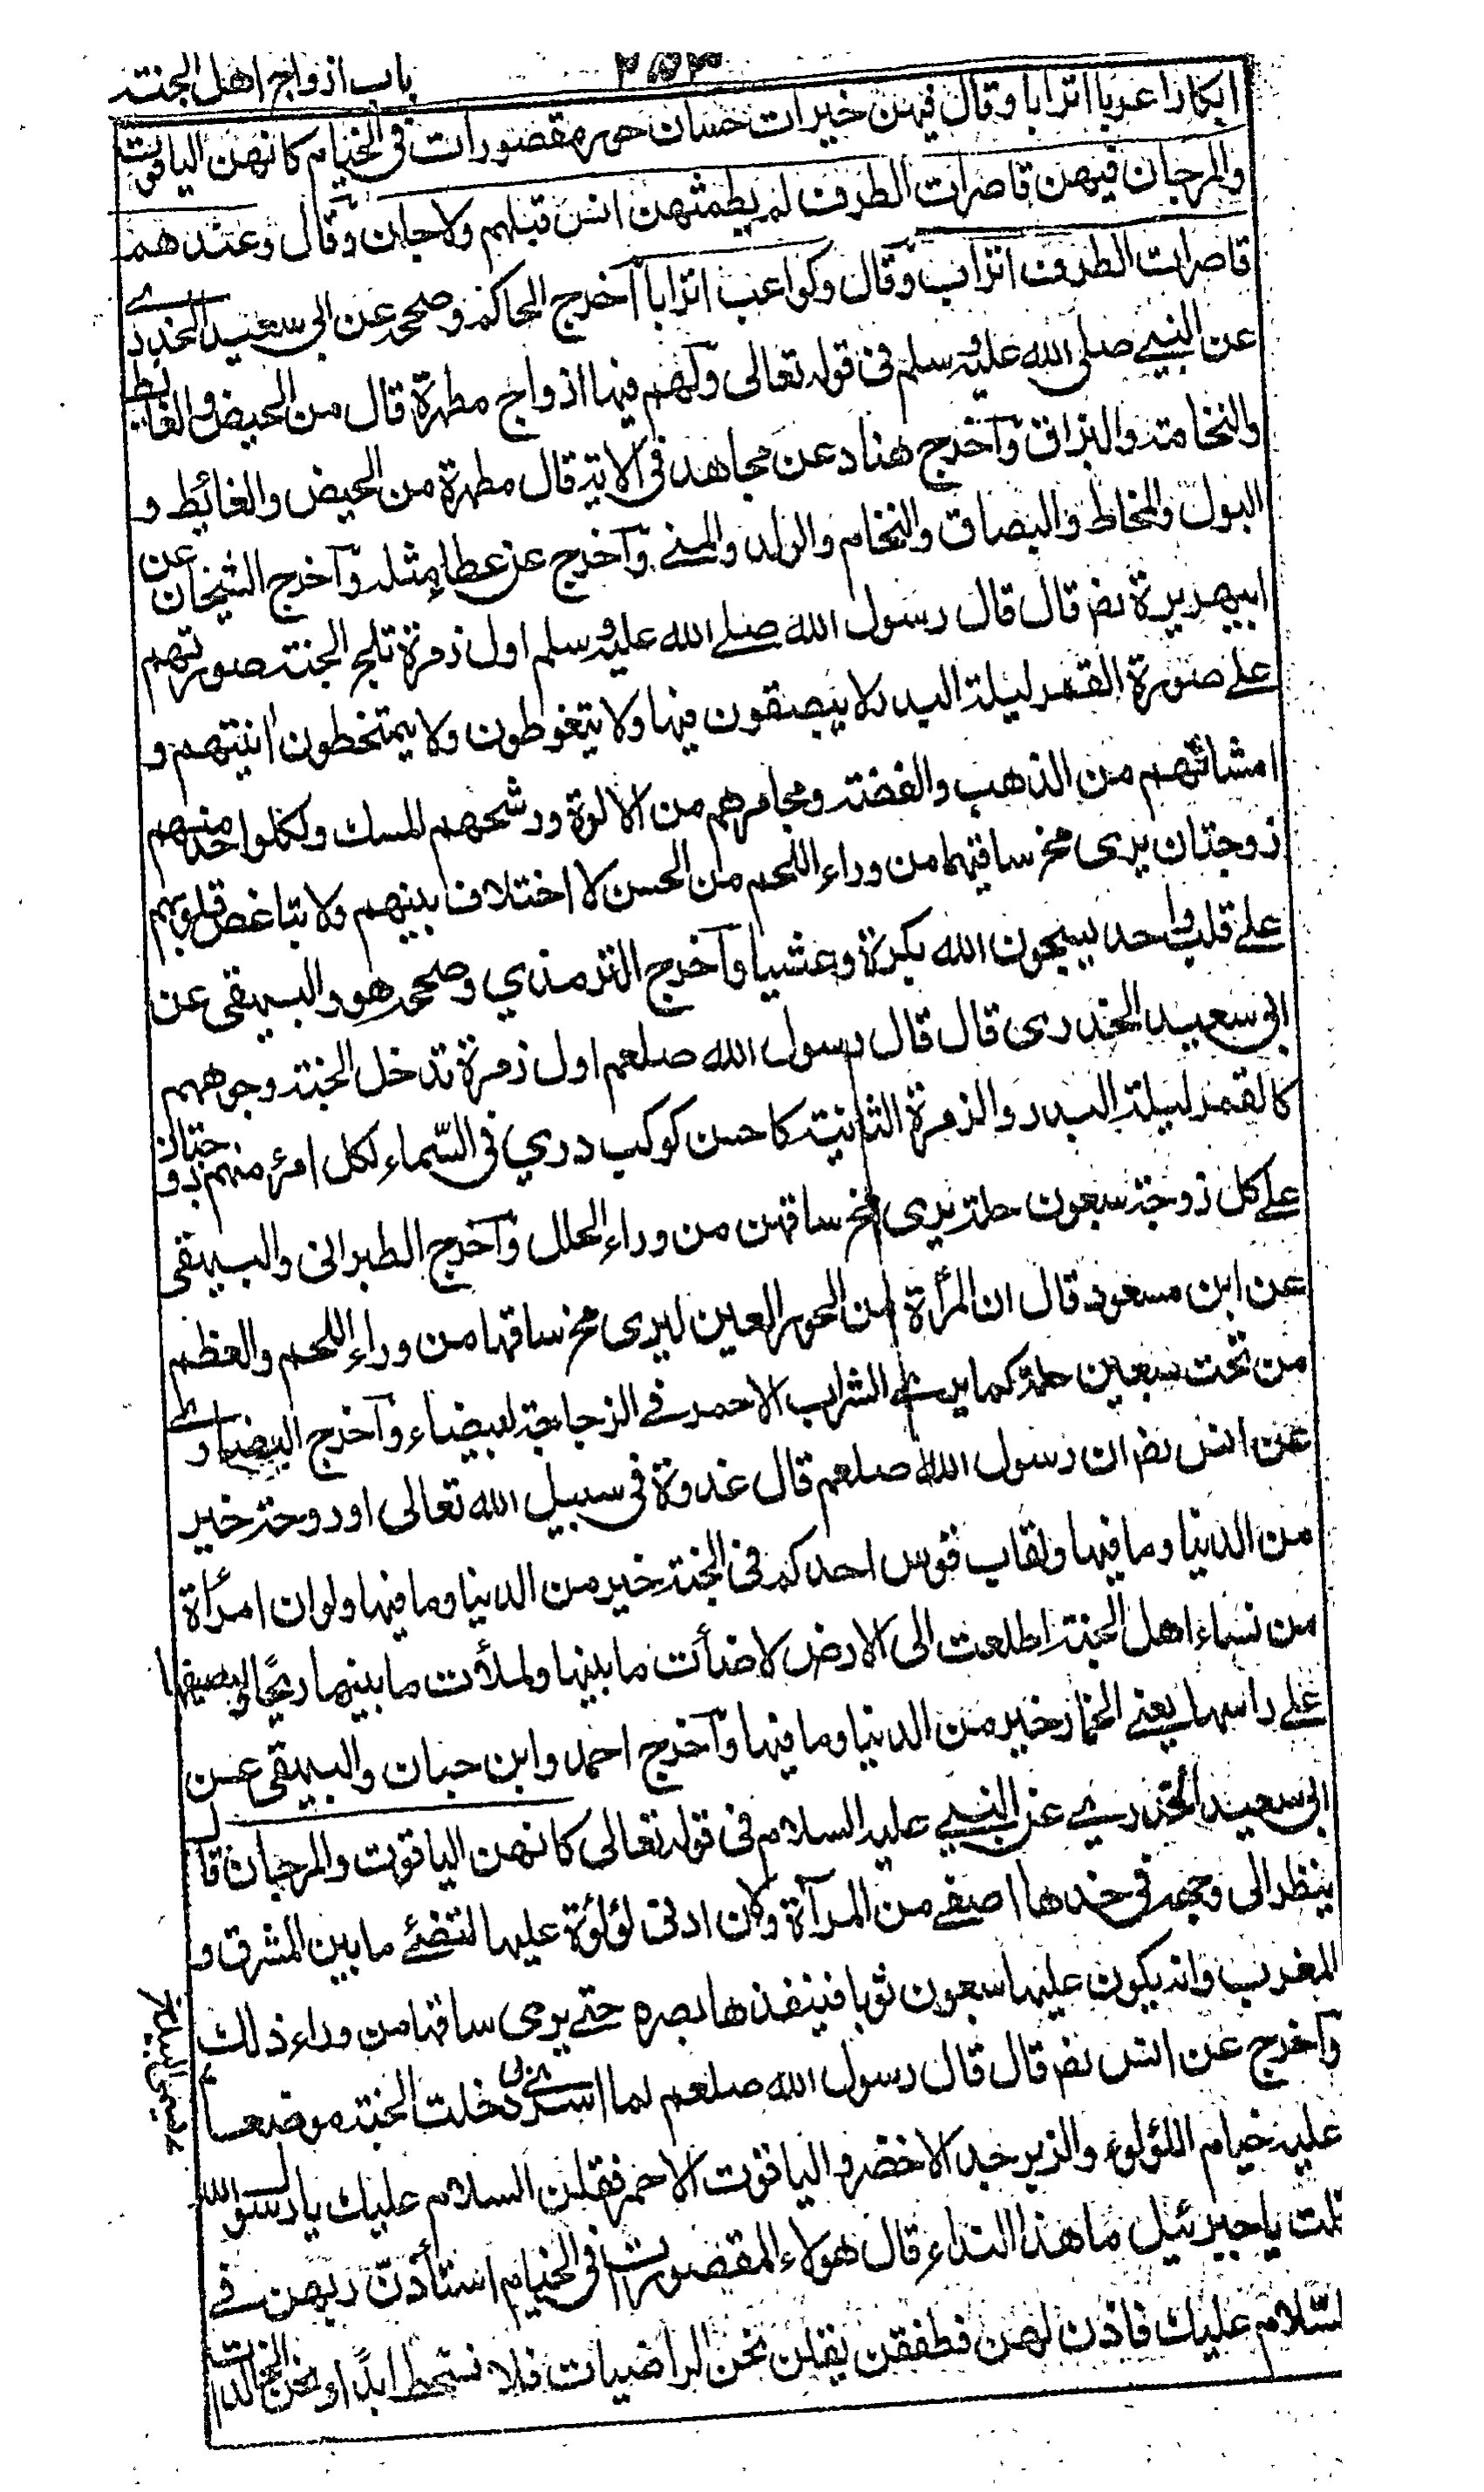 باب ازواج اهل الجنة
٢٥٣
ابكارا عربا اترابا وقال فيهن خيرات حسان حور مقصورات في الخيام كانهن الياقوت
والمرجان فيهن قاصرات الطرف لم يطمثهن انس قبلهم ولا جان وقال وعندهم
قاصرات الطرف اتراب وقال وكواعب اترابا اخرج الحاكم وصححه عن ابي سعيد الخدري
عن النبي صلى الله عليه وسلم في قوله تعالى ولهم فيها ازواج مطهرة قال من الحيض والغائط
والنخامة والبزاق وآخرج هناد عن مجاهد في الاية قال مطهرة من الحيض والغائط و
البول والمخاط والبصاق والنخام والولد والمني وآخرج عن عطاء مثله وآخرج الشيخان عن
ابيهريرة رض قال قال رسول الله صلى الله عليه وسلم اول زمرة تلج الجنة صورتهم
على صورة القمر ليلة البدر لا يبصقون فيها ولا يتغوطون ولا يمتخطون انيتهم و
امشاطهم من الذهب والفضة ومجامرهم من الالوة ورشحهم المسك ولكل واحد منهم
زوجتان يرى مخ ساقيهما من وراء اللحم من الحسن لا اختلاف بينهم ولا تباغض قلوبهم
على قلب واحد يسبحون الله بكرة وعشيا وآخرج الترمذي وصححه هو والبيهقي عن
ابي سعيد الخدري قال قال رسول الله صلعم اول زمرة تدخل الجنة وجوههم
كالقمر ليلة البدر والزمرة الثانية كاحسن كوكب دري في السماء لكل امرء منهم زوجتان
على كل زوجة سبعون حلة يرى مخ ساقهن من وراء الحلل وآخرج الطبراني والبيهقي
عن ابن مسعود قال ان المرأة من الحور العين ليرى مخ ساقها من وراء اللحم والعظم
من تحت سبعين حلة كما يرى الشراب الاحمر في الزجاجة البيضاء وآخرج البيضاوي
عن انس رض ان رسول الله صلعم قال غدوة في سبيل الله تعالى او روحة خير
من الدنيا وما فيها ولقاب قوس احدكم في الجنة خير من الدنيا وما فيها ولو ان امرأة
من نساء اهل الجنة اطلعت الى الارض لاضأت ما بينها ولملأت ما بينهما ريحا ولنصيفها
على راسها يعني الخمار خير من الدنيا وما فيها وآخرج احمد وابن حبان والبيهقي عن
ابي سعيد الخدري عن النبي عليه السلام في قوله تعالى كانهن الياقوت والمرجان قال
ينظر الى وجهه في خدها اصفى من المرآة وان ادنى لؤلؤة عليها لتضئ ما بين المشرق و
المغرب وانه يكون عليها سبعون ثوبا فينفذها بصره حتى يرى ساقها من وراء ذلك
وآخرج عن انس رض قال قال رسول الله صلعم لما اسري بي دخلت الجنة موضعا
عليه خيام اللؤلوء والزبرجد الاخضر والياقوت الاحمر فقلن السلام عليك يا رسول الله
قلت يا جبرئيل ما هذا النداء قال هولاء المقصورات في الخيام استأذن ربهن في
السلام عليك فاذن لهن فطفقن يقلن نحن الراضيات فلا نسخط ابدا ونحن الخالدات